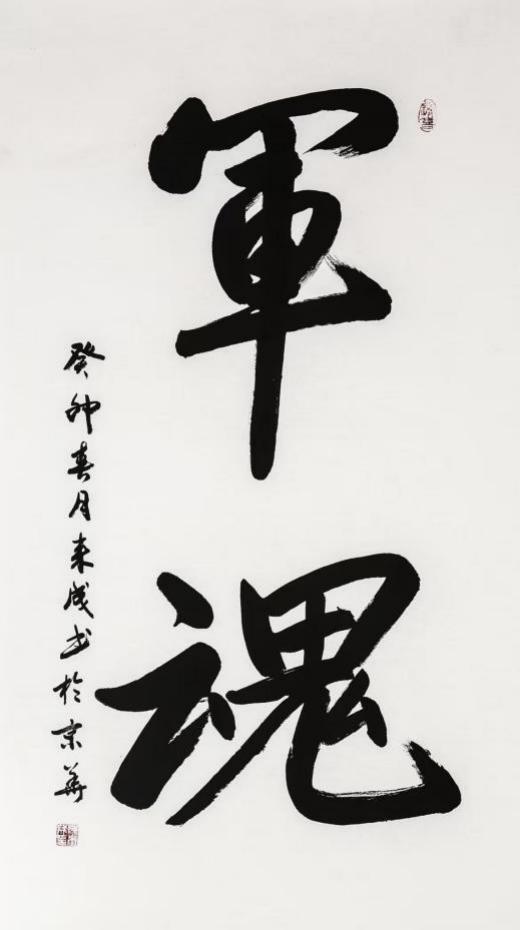 軍魂
癸卯春月來成书於京華